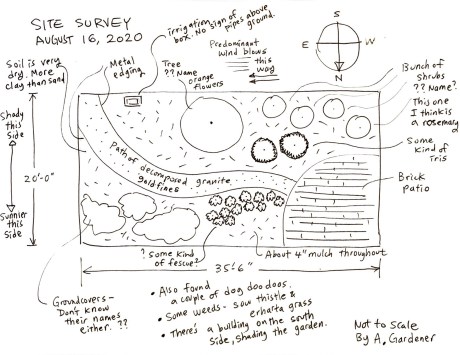 SITE SURVEY
AUGUST 16, 2020
irrigation
box. No sign of
pipes above
ground.
Predominant
wind blows
this
way
S
E
W
N
Soil is very
dry. More
clay than sand
Metal
edging
Tree
?? Name
orange
flowers
Bunch of
shrubs
?? Name?
This one
I think is
a rosemary
Shady
this
side
20'-0"
Sunnier
this
side
Path of decomposed granite
gold fines
Some
kind of
iris
Brick
patio
? Some kind
of fescue?
About 4" mulch throughout
35'-6"
Groundcovers -
Don't know
their names
either. ??
• Also found
a couple of dog doo doos.
• Some weeds - sow thistle &
erharta grass
• There's a building on the south
side, shading the garden.
Not to Scale
By A. Gardener